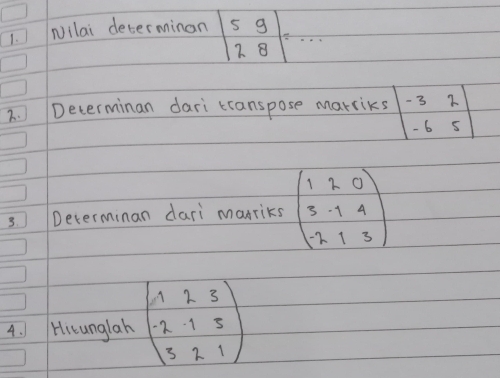 1. Nilai determinan |5 9| = ...
|2 8|
2. Determinan dari transpose matriks |-3 2|
|-6 5|
(1 2 0)
3. Determinan dari matriks (3 -1 4)
(-2 1 3)
(1 2 3)
4. Hitunglah (-2 -1 3)
(3 2 1)